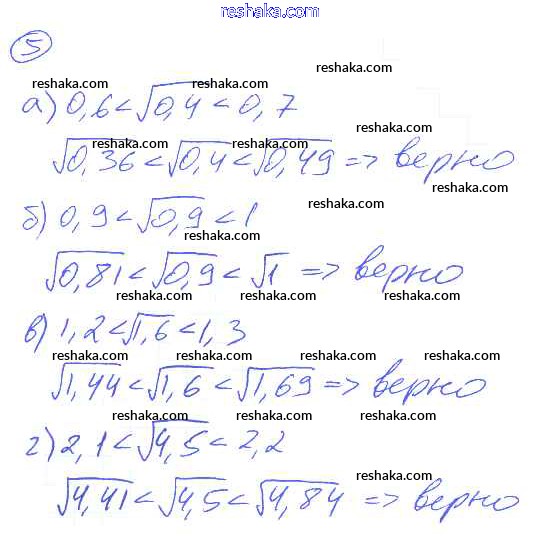 reshaka.com
5
reshaka.com
reshaka.com reshaka.com
а) 0,6 < √0,4 < 0,7
reshaka.com
reshaka.com reshaka.com
√0,36 < √0,4 < √0,49 => верно
reshaka.com reshaka.com
reshaka.com
б) 0,9 < √0,9 < 1
reshaka.com
reshaka.com
√0,81 < √0,9 < √1 => верно
reshaka.com reshaka.com reshaka.com
в) 1,2 < √1,6 < 1,3
reshaka.com reshaka.com reshaka.com
√1,44 < √1,6 < √1,69 => верно
reshaka.com reshaka.com
г) 2,1 < √4,5 < 2,2
reshaka.com
√4,41 < √4,5 < √4,84 => верно
reshaka.com